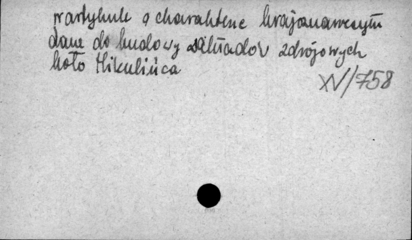 w artykule o charakterze krajoznawczym
dane do budowy zakładów zdrojowych
koło Mikulińca
XV/758